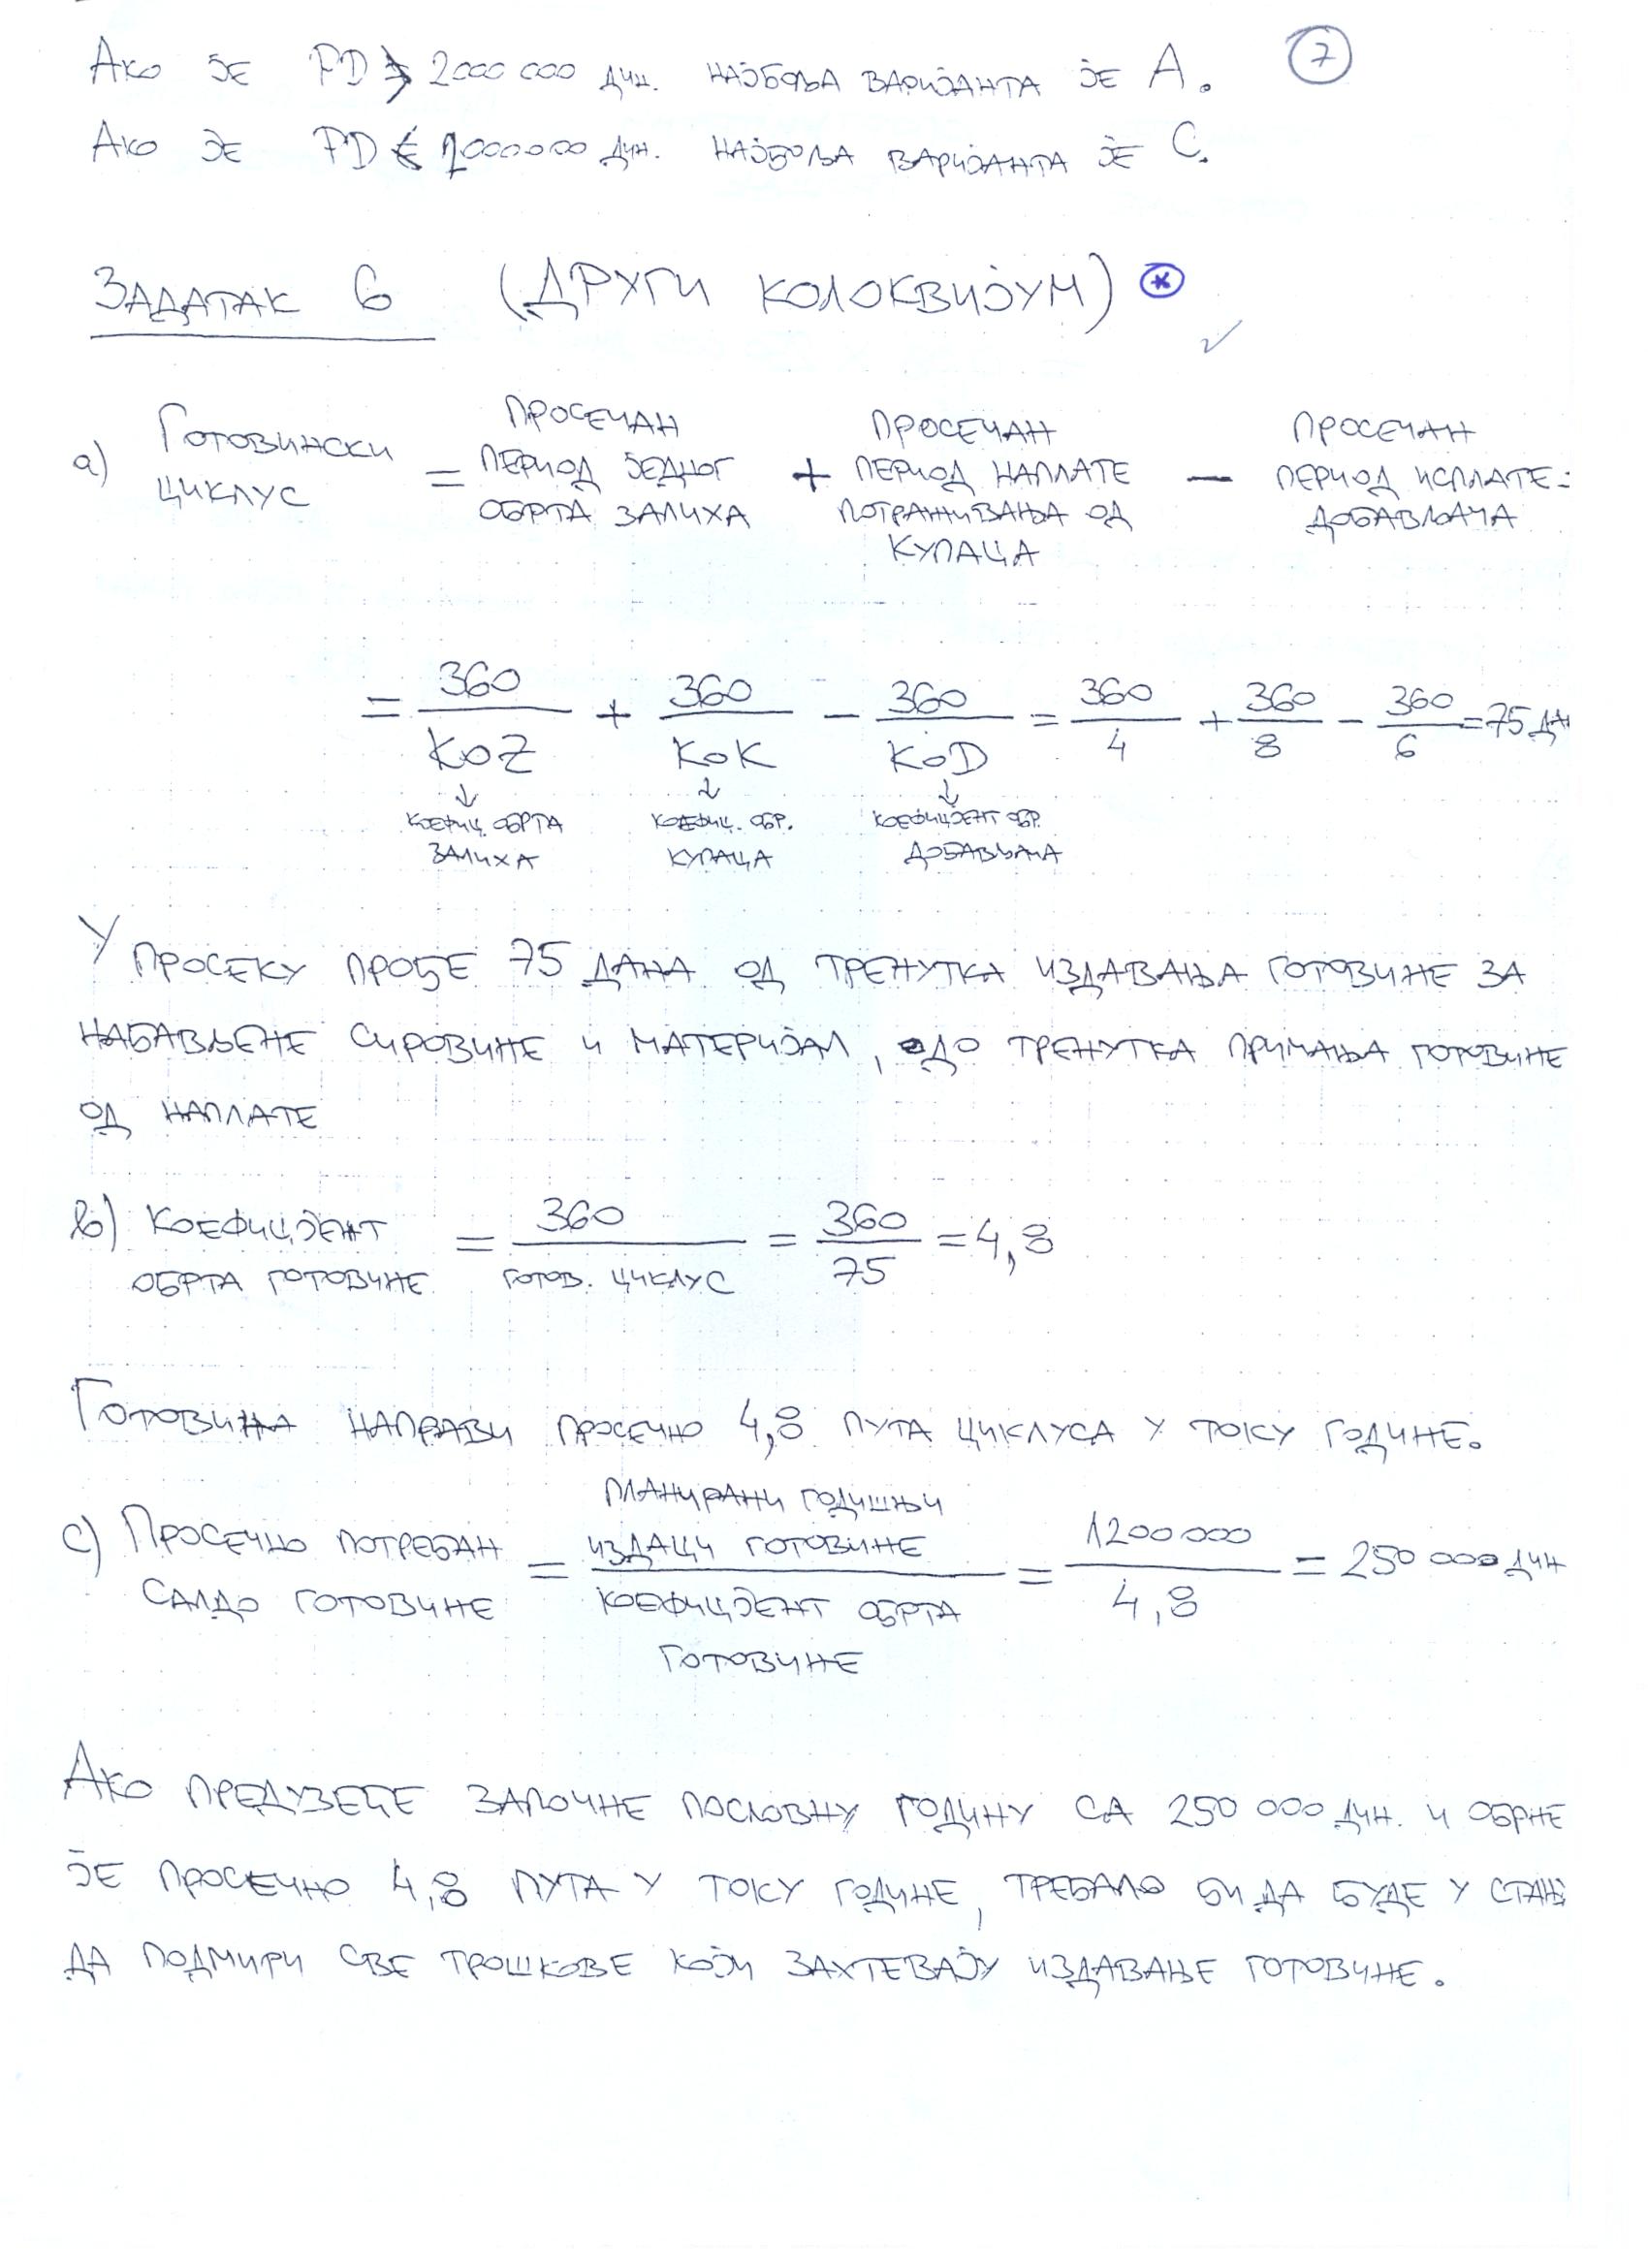 7
Ако је PD > 2000 000 дин. најбоља варијанта је А.
Ако је PD < 2000000 дин. најбоља варијанта је С.
Задатак 6 (Други колоквијум) *
a) Готовински циклус = просечан период једног обрта залиха + просечан период наплате потраживања од купаца - просечан период исплате добављача =
= 360/KOZ + 360/KOK - 360/KOD = 360/4 + 360/8 - 360/6 = 75 да
↓ коефиц. обрта залиха ↓ коефиц. обр. купаца ↓ коефицијент обр. добављача
У просеку прође 75 дана од тренутка издавања готовине за
набављене сировине и материјал, до тренутка примања готовине
од наплате
b) Коефицијент обрта готовине = 360/готов. циклус = 360/75 = 4,8
Готовина направи просечно 4,8 пута циклуса у току године.
c) Просечно потребан салдо готовине = планирани годишњи издаци готовине/коефицијент обрта готовине = 1200 000/4,8 = 250 000 дин
Ако предузеће започне пословну годину са 250 000 дин. и обрне
је просечно 4,8 пута у току године, требало би да буде у стањ
да подмири све трошкове који захтевају издавање готовине.